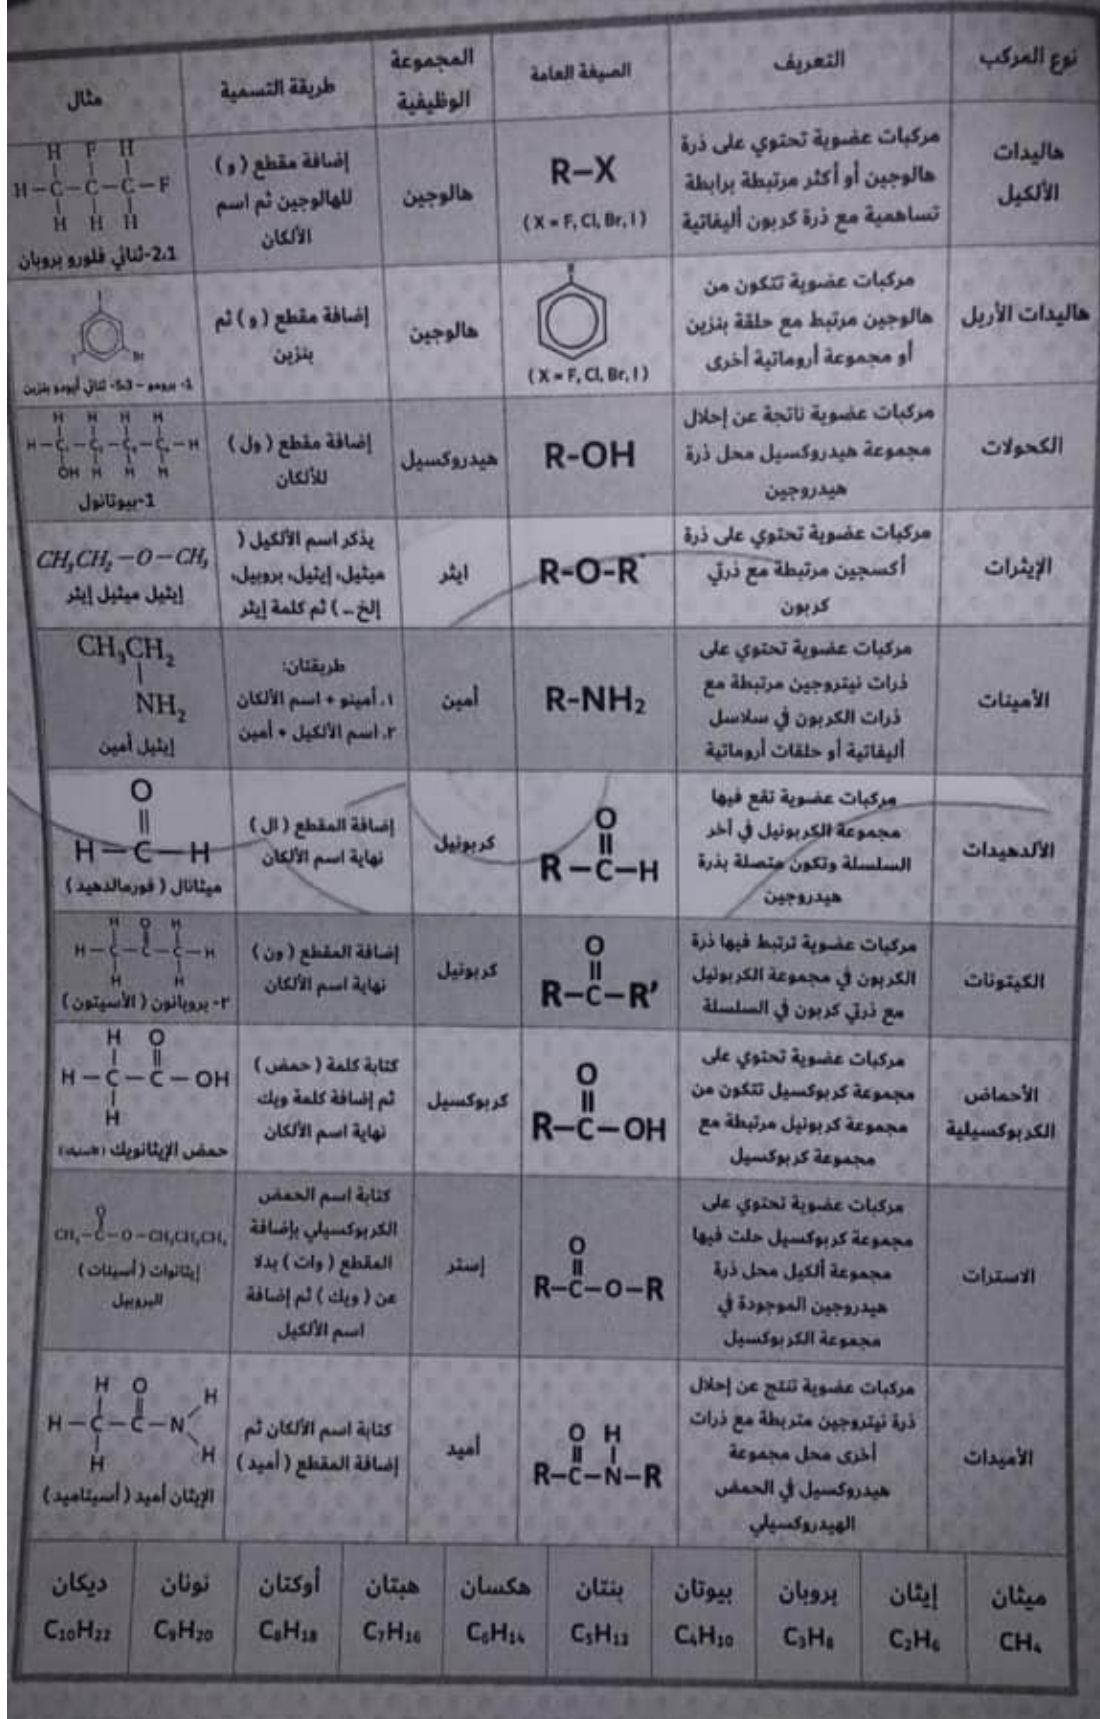 نوع المركب
التعريف
الصيغة العامة
المجموعة
الوظيفية
طريقة التسمية
مثال
هاليدات
الألكيل
مركبات عضوية تحتوي على ذرة
هالوجين أو أكثر مرتبطة برابطة
تساهمية مع ذرة كربون أليفاتية
R–X
(X = F, Cl, Br, I)
هالوجين
إضافة مقطع (و)
للهالوجين ثم اسم
الألكان
H F H
H–C–C–C–F
H H H
2،1-ثنائي فلورو بروبان
هاليدات الأريل
مركبات عضوية تتكون من
هالوجين مرتبط مع حلقة بنزين
أو مجموعة أروماتية أخرى
(X = F, Cl, Br, I)
هالوجين
إضافة مقطع (و) ثم
بنزين
I
I Br
1- برومو – 5،3- ثنائي أيودو بنزين
الكحولات
مركبات عضوية ناتجة عن إحلال
مجموعة هيدروكسيل محل ذرة
هيدروجين
R-OH
هيدروكسيل
إضافة مقطع (ول)
للألكان
H H H H
H–C–C–C–C–H
OH H H H
1-بيوتانول
الإيثرات
مركبات عضوية تحتوي على ذرة
أكسجين مرتبطة مع ذرتي
كربون
R-O-R'
ايثر
يذكر اسم الألكيل (
ميثيل، إيثيل، بروبيل،
إلخ ..) ثم كلمة إيثر
CH₃CH₂–O–CH₃
إيثيل ميثيل إيثر
الأمينات
مركبات عضوية تحتوي على
ذرات نيتروجين مرتبطة مع
ذرات الكربون في سلاسل
أليفاتية أو حلقات أروماتية
R-NH₂
أمين
طريقتان:
١. أمينو + اسم الألكان
٢. اسم الألكيل + أمين
CH₃CH₂
NH₂
إيثيل أمين
الألدهيدات
مركبات عضوية تقع فيها
مجموعة الكربونيل في آخر
السلسلة وتكون متصلة بذرة
هيدروجين
O
R–C–H
كربونيل
إضافة المقطع (ال)
نهاية اسم الألكان
O
H–C–H
ميثانال (فورمالدهيد)
الكيتونات
مركبات عضوية ترتبط فيها ذرة
الكربون في مجموعة الكربونيل
مع ذرتي كربون في السلسلة
O
R–C–R'
كربونيل
إضافة المقطع (ون)
نهاية اسم الألكان
H O H
H–C–C–C–H
H H
٢- بروبانون (الأسيتون)
الأحماض
الكربوكسيلية
مركبات عضوية تحتوي على
مجموعة كربوكسيل تتكون من
مجموعة كربونيل مرتبطة مع
مجموعة كربوكسيل
O
R–C–OH
كربوكسيل
كتابة كلمة (حمض)
ثم إضافة كلمة ويك
نهاية اسم الألكان
H O
H–C–C–OH
H
حمض الإيثانويك
الاسترات
مركبات عضوية تحتوي على
مجموعة كربوكسيل حلت فيها
مجموعة ألكيل محل ذرة
هيدروجين الموجودة في
مجموعة الكربوكسيل
O
R–C–O–R
إستر
كتابة اسم الحمض
الكربوكسيلي بإضافة
المقطع (وات) بدلا
عن (ويك) ثم إضافة
اسم الألكيل
O
CH₃–C–O–CH₂CH₂CH₃
إيثانوات (أسيتات)
البروبيل
الأميدات
مركبات عضوية تنتج عن إحلال
ذرة نيتروجين متربطة مع ذرات
أخرى محل مجموعة
هيدروكسيل في الحمض
الهيدروكسيلي
O H
R–C–N–R
أميد
كتابة اسم الألكان ثم
إضافة المقطع (أميد)
H O H
H–C–C–N
H H
الإيثان أميد (أسيتاميد)
ميثان
إيثان
بروبان
بيوتان
بنتان
هكسان
هبتان
أوكتان
نونان
ديكان
CH₄
C₂H₆
C₃H₈
C₄H₁₀
C₅H₁₂
C₆H₁₄
C₇H₁₆
C₈H₁₈
C₉H₂₀
C₁₀H₂₂